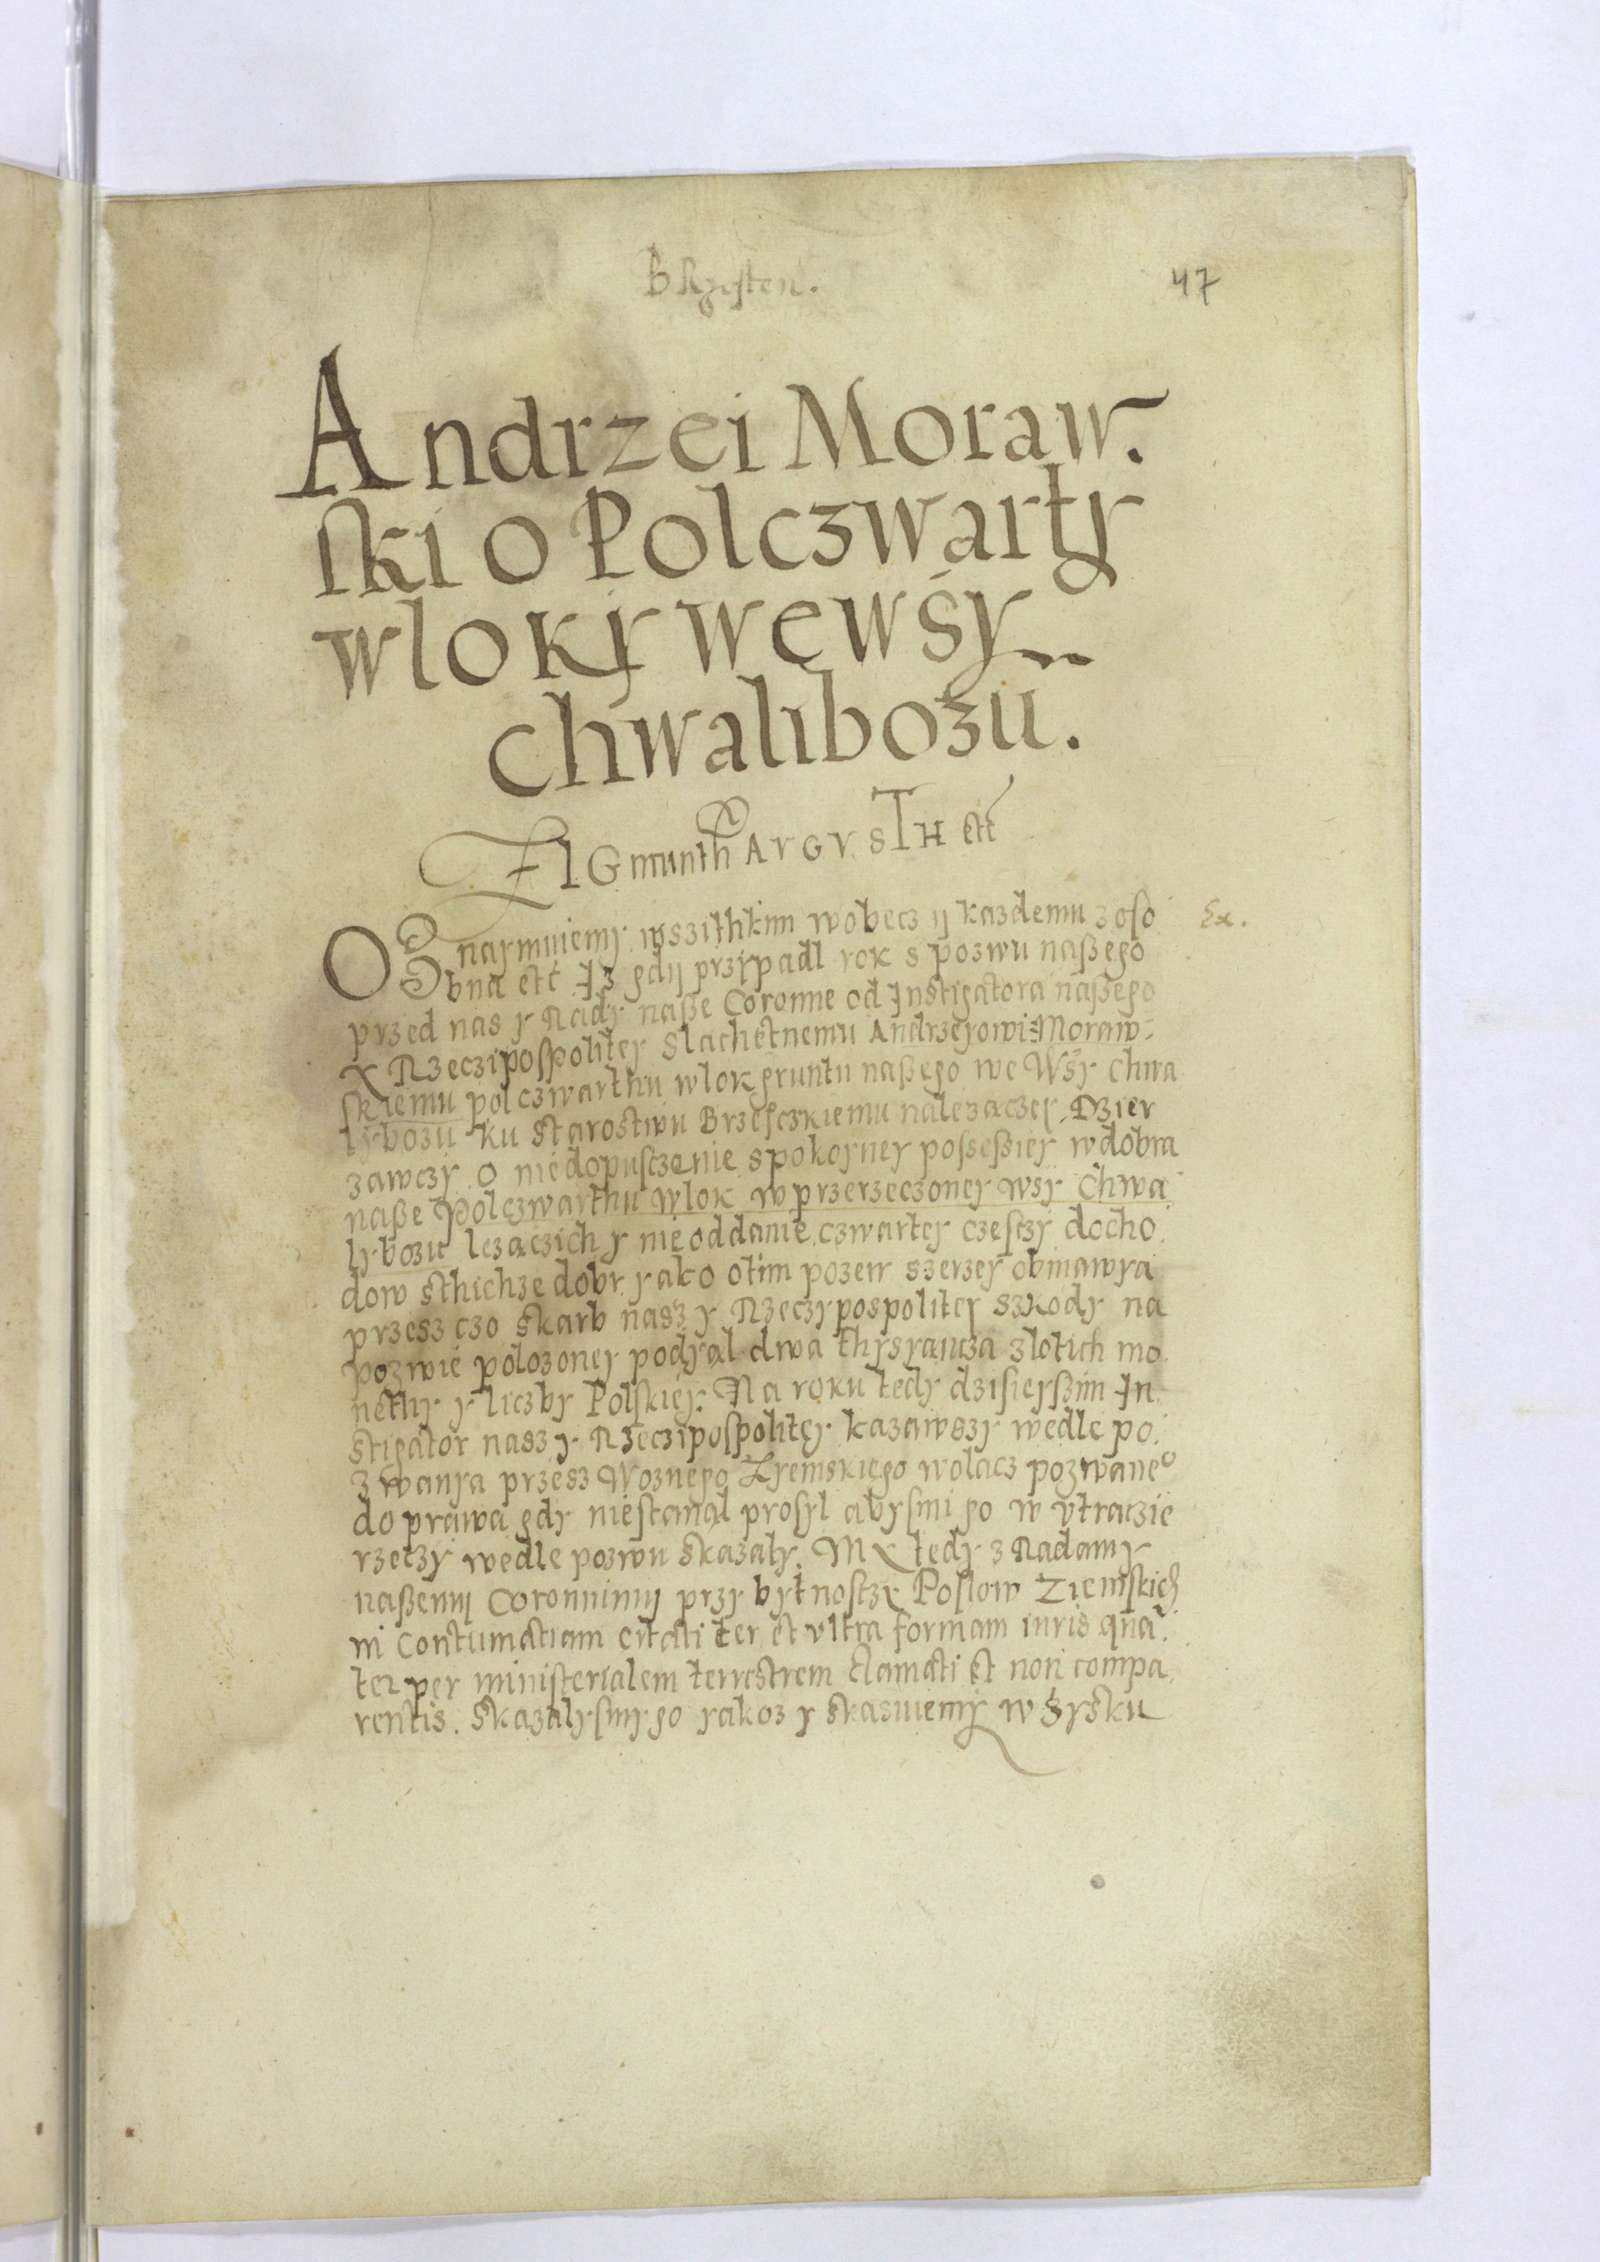 BRzesten.
47
Andrzei Moraw.
ski o Polczwarty
wloky we wsy
chwalibozu.
ZIGmunth AVGVSTH etc
OZnaymuiemy wszithkim wobecz ij kazdemu z oso
bna etc Iz gdij przypadl rok s pozwu naßego
Ex.
przed nas y Rady naße Coronne od Instigatora naßego
y Rzeczipospolitey Slachetnemu Andrzeyowi Moraw-
skiemu polczwarthu wlok gruntu naßego we Wsy Chwa
lybozu ku starostwu Brzesczkiemu nalezaczey Dzier
zawczy o niedopusczenie spokoyney possessiey w dobra
naße Polczwarthu wlok w przerzeczoney wsy Chwa
lybozu lezaczich y nieoddanie czwartey czesczy docho
dow sthichze dobr yako o tim pozew szerzey obmawya
przesz czo skarb nasz y Rzeczypospolitey szkody na
pozwie polozoney podyal dwa thysyancza zlotich mo
nethy y liczby Polskiey. Na roku tedy dzisieyszim In
stigator nasz y Rzeczipospolitey kazawszy wedle po
zwanya przesz Woznego Zyemskiego wolacz pozwaneo
do prawa gdy niestanal prosyl abysmi go w vtraczie
rzeczy wedle pozwu skazaly. My tedy z Radamy
naßemij Coronnimij przy bytnosczy Poslow Ziemskich
in Contumatiam citati ter et vltra formam iuris qua
ter per ministerialem terrestrem clamati et non compa
rentis. Skazalysmy go yakoz y skazuiemy w Zysku